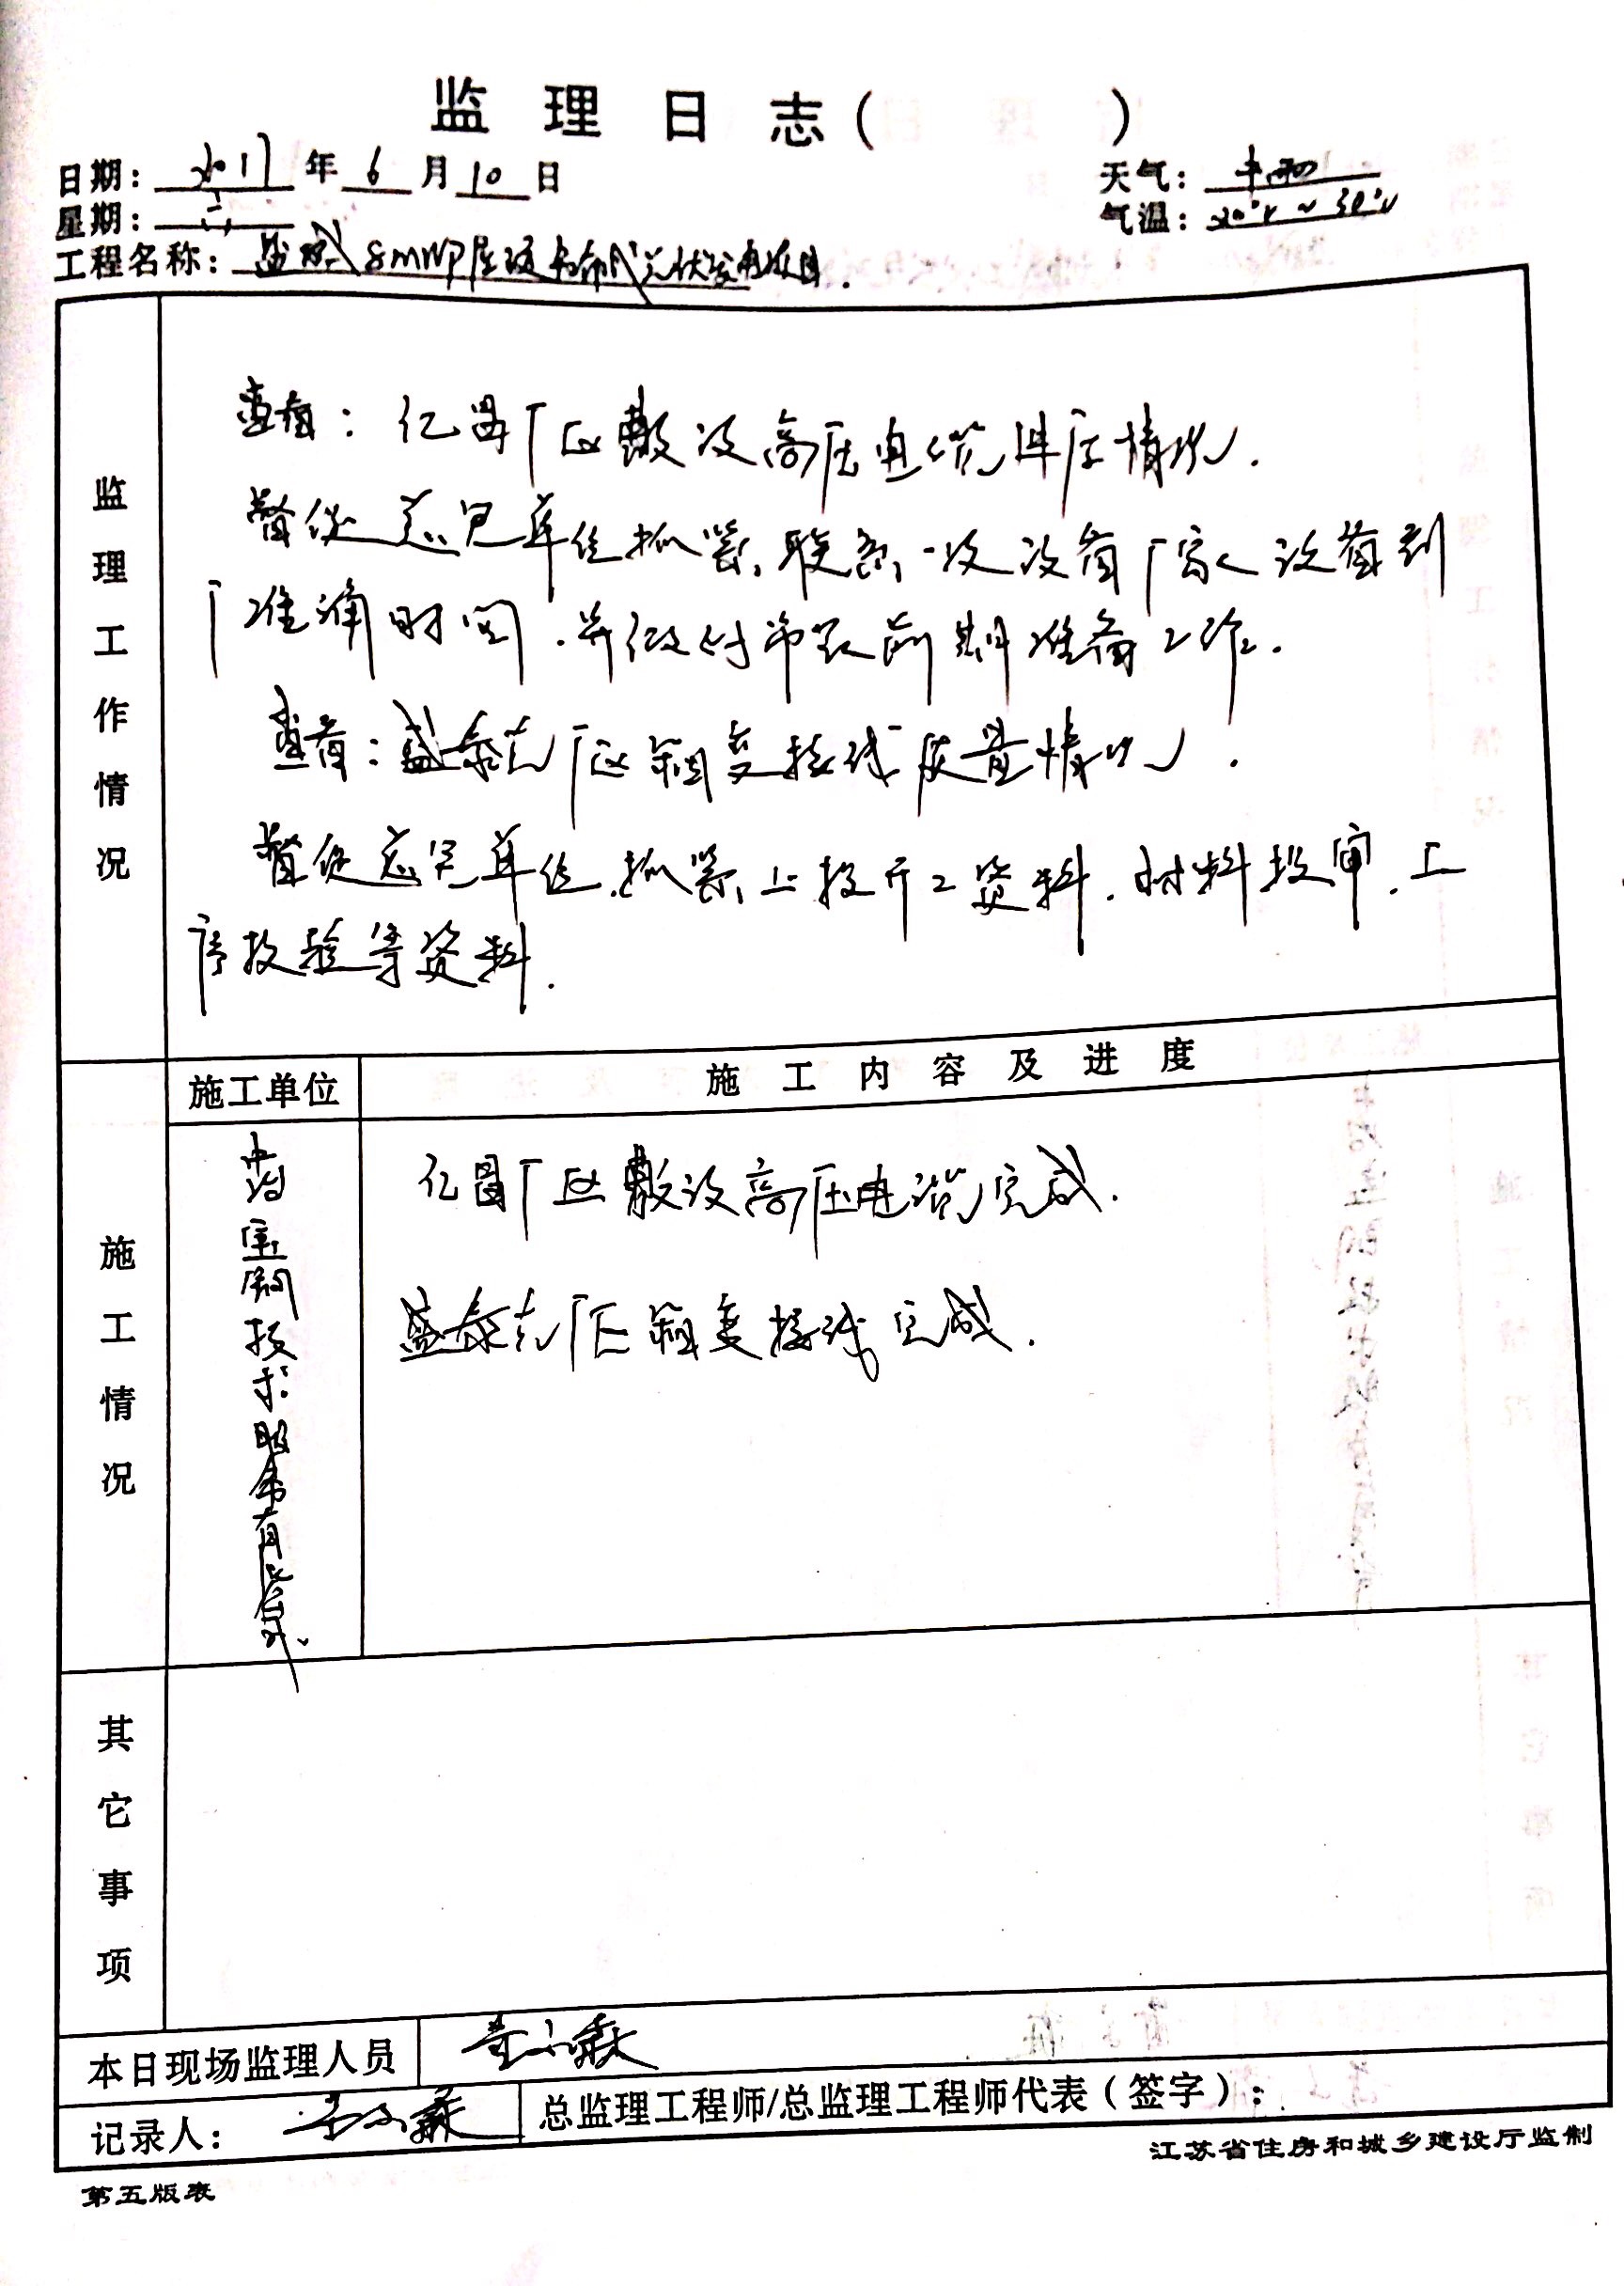 监理日志(　　)
日期：2017年6月10日
天气：中雨
星期：六
气温：20℃~30℃
工程名称：盐城8MWP屋顶分布式光伏发电项目.
监理工作情况
查看：亿昌厂区敷设高压电缆 情况.
督促总包单位抓紧联系一次设备厂家设备到
厂准确时间.并做好 前期准备工作.
查看：盛泰克厂区箱变接线质量情况.
督促总包单位抓紧上报开工资料.材料报审.工
序报验等资料.
施工情况
施工单位
施工内容及进度
中 技术服务有限公司.
亿昌厂区敷设高压电缆完成.
盛泰克厂区箱变接线完成.
其它事项
本日现场监理人员
记录人：
总监理工程师/总监理工程师代表（签字）：
江苏省住房和城乡建设厅监制
第五版表